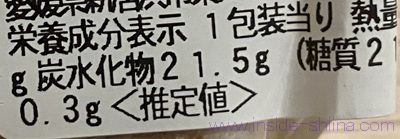 栄養成分表示 1包装当り 熱量
g 炭水化物21.5g (糖質2
0.3g<推定値>
www.inside-shiina.com